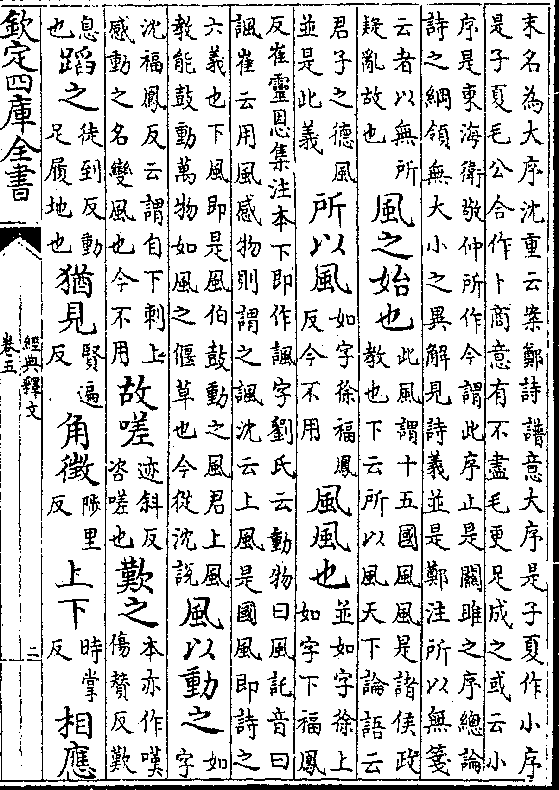 末名為大序沈重云案鄭詩譜意大序是子夏作小序
是子夏毛公合作卜商意有不盡毛更足成之或云小
序是東海衛敬仲所作今謂此序止是關雎之序總論
詩之綱領無大小之異解見詩義並是鄭注所以無箋
云者以無所疑亂故也風之始也此風謂十五國風風是諸侯政教也下云所以風天下論語云
君子之德風並是此義所以風如字徐福鳳反今不用風風也並如字徐上如字下福鳳
反崔靈恩集注本下即作諷字劉氏云動物曰風託音曰
諷崔云用風感物則謂之諷沈云上風是國風即詩之
六義也下風即是風伯鼓動之風君上風教能鼓動萬物如風之偃草也今從沈說風以動之如字
沈福鳳反云謂自下刺上感動之名變風也今不用故嗟迹斜反咨嗟也歎之本亦作嘆傷贊反歎
息也蹈之徒到反動足履地也猶見賢遍反角徵陟里反上下時掌反相應
欽定四庫全書
經典釋文
卷五
二